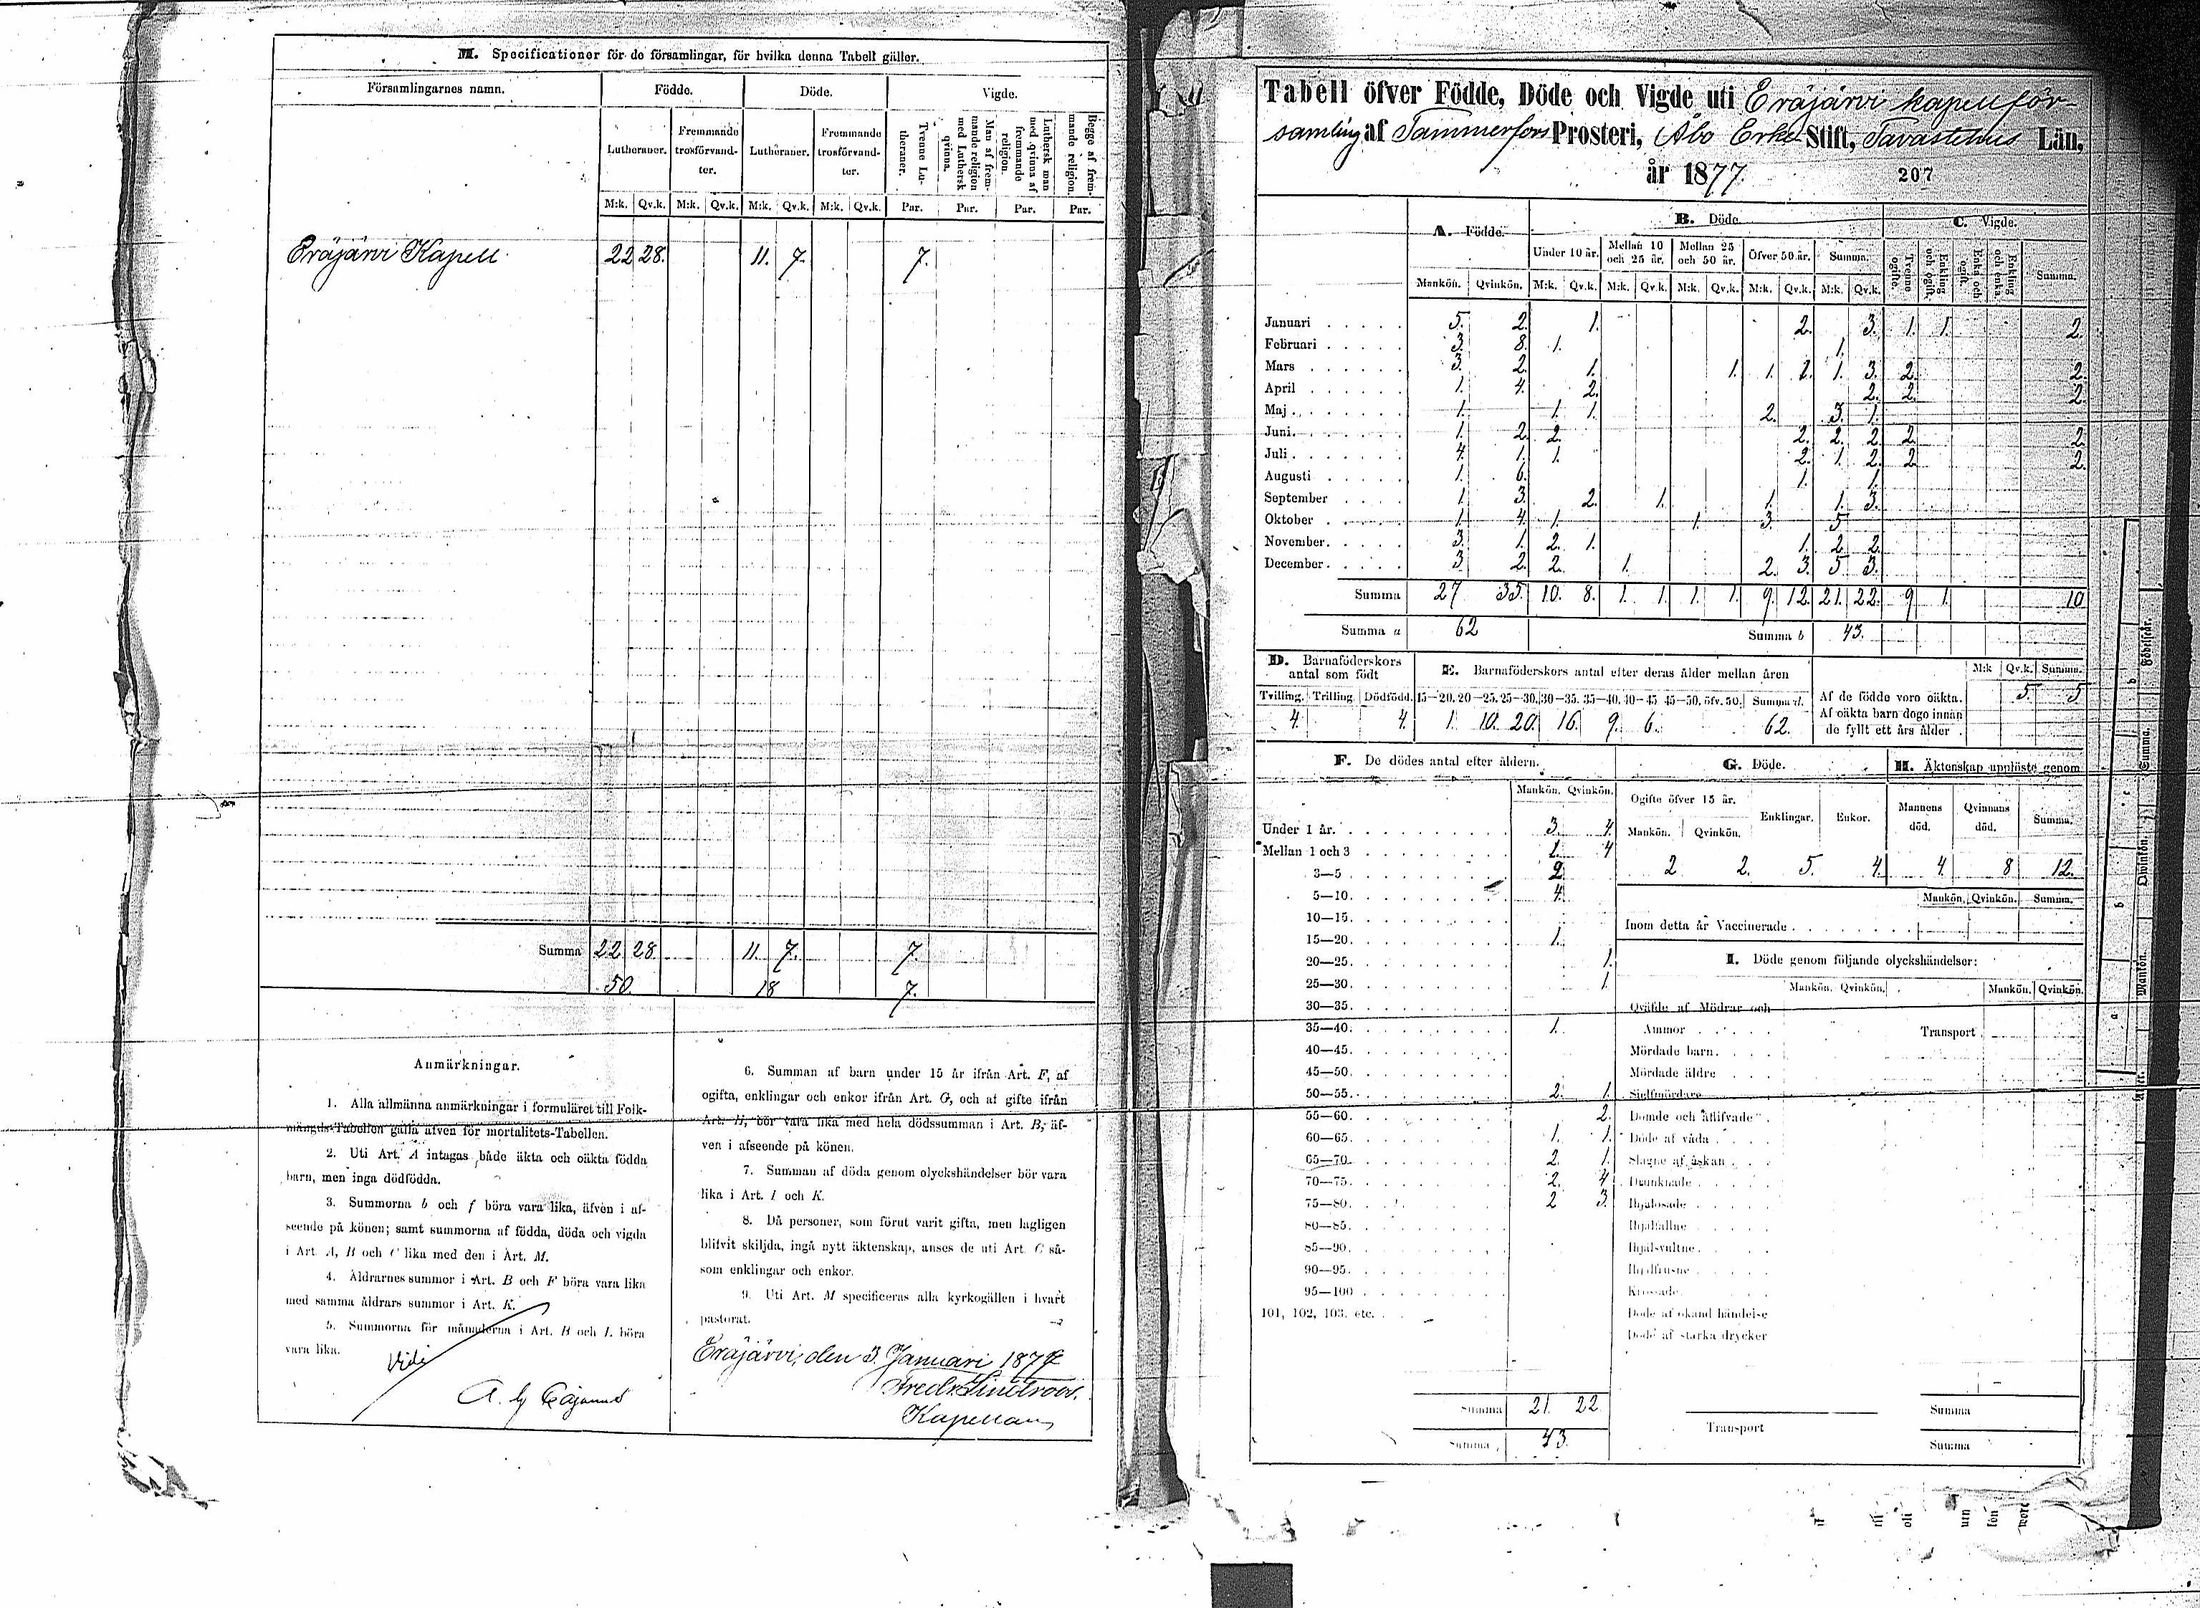 M. Specificationer för de församlingar, för hvilka denna Tabell gäller.
Församlingarnes namn. Födde. Döde. Vigde.
Lutheraner. Fremmande trosförvandter. Lutheraner. Fremmande trosförvandter. Tvenne Lutheraner. Man af fremmande religion med Luthersk qvinna. Luthersk man med qvinna af fremmande religion. Begge af fremmande religion.
M:k. Qv.k. M:k. Qv.k. M:k. Qv.k. M:k. Qv.k. Par. Par. Par. Par.
Eräjärvi Kapell 22 28. 11. 7. 7.
Summa 22 28 11. 7. 7.
50. 18 7.
Anmärkningar.
1. Alla allmänna anmärkningar i formuläret till Folk-
mängds-Tabellen gälla äfven för mortalitets-Tabellen.
2. Uti Art. A intagas både äkta och oäkta födda
barn, men inga dödfödda.
3. Summorna b och f böra vara lika, äfven i af-
seende på könen; samt summorna af födda, döda och vigda
i Art. A, B och C lika med den i Art. M.
4. Åldrarnes summor i Art. B och F böra vara lika
med samma åldrars summor i Art. K.
5. Summorna för månaderna i Art. B och L böra
vara lika.
Vidi
6. Summan af barn under 15 år ifrån Art. F, af
ogifta, enklingar och enkor ifrån Art. G, och af gifte ifrån
Art. H, bör vara lika med hela dödssumman i Art. B, äf-
ven i afseende på könen.
7. Summan af döda genom olyckshändelser bör vara
lika i Art. I och K.
8. Då personer, som förut varit gifta, men lagligen
blifvit skiljda, ingå nytt äktenskap, anses de uti Art. C så-
som enklingar och enkor.
9. Uti Art. M specificeras alla kyrkogällen i hvart
pastorat.
Eräjärvi, den 3 Januari 187
Kapellan
Tabell öfver Födde, Döde och Vigde uti Eräjärvi kapellför-
samling af Tammerfors Prosteri, Åbo Erke Stift, Tavastehus Län,
år 1877. 207
A. Födde. B. Döde. C. Vigde.
Under 10 år. Mellan 10 och 25 år. Mellan 25 och 50 år. Öfver 50 år. Summa. Tvenne ogifte. Enkling och ogift. Enka och ogift. Enkling och enka. Summa.
Mankön. Qvinkön. M:k. Qv.k. M:k. Qv.k. M:k. Qv.k. M:k. Qv.k. M:k. Qv.k.
Januari 5. 2. 1. 2. 3. 1. 1. 2.
Februari 3. 8. 1. 1.
Mars 3. 2. 1. 1. 1. 1. 1. 3. 2. 2.
April 1. 4. 2. 2. 2. 2.
Maj 1. 1. 1. 2. 3. 1.
Juni 1. 2. 2. 2. 2. 2. 2. 2.
Juli 4. 1. 1. 2. 1. 2. 2 2.
Augusti 1. 6. 1. 1.
September 1. 3. 2. 1. 1. 1. 3.
Oktober 1. 4. 1. 1. 3. 5
November. 3. 1. 2. 1. 1. 2 2.
December. 3. 2. 2. 1. 2. 3. 5 3.
Summa 27 35. 10. 8. 1. 1. 1. 1. 9. 12. 21. 22. 9 1. 10
Summa a 62 Summa b 43.
D. Barnaföderskors antal som födt
Tvilling. Trilling. Dödfödd.
4. 4.
E. Barnaföderskors antal efter deras ålder mellan åren
15—20. 20—25. 25—30. 30—35. 35—40. 40—45 45—50. öfv. 50. Summa d.
1. 10. 20. 16. 9. 6. 62.
M:k Qv.k. Summa.
Af de födde voro oäkta. 5. 5
Af oäkta barn dogo innan
de fyllt ett års ålder
F. De dödes antal efter åldern.
Mankön. Qvinkön.
Under 1 år. 3. 4.
Mellan 1 och 3 1. 4
3—5 2
5—10. 4.
10—15.
15—20. 1.
20—25. 1.
25—30. 1.
30—35.
35—40. 1.
40—45.
45—50.
50—55. 2. 1.
55—60. 2.
60—65. 1. 1.
65—70. 2. 1.
70—75. 2. 4
75—80. 2 3.
80—85.
85—90.
90—95.
95—100
101, 102, 103. etc.
Summa 21. 22.
Summa 43.
G. Döde.
Ogifte öfver 15 år. Enklingar. Enkor.
Mankön. Qvinkön.
2 2. 5. 4.
H. Äktenskap upplöste genom
Mannens död. Qvinnans död. Summa.
4. 8 12.
Mankön. Qvinkön. Summa.
Inom detta år Vaccinerade
I. Döde genom följande olyckshändelser:
Mankön. Qvinkön. Mankön. Qvinkön.
Qväfde af Mödrar och
Ammor Transport
Mördade barn.
Mördade äldre
Sjelfmördare
Dömde och aflifvade
Döde af våda
Slagne af åskan
Drunknade
Ihjälosade
Ihjälfallne
Ihjälsvultne
Ihjälfrusne
Krossade
Döde af okänd händelse
Döde af starka drycker
Transport
Summa
Summa